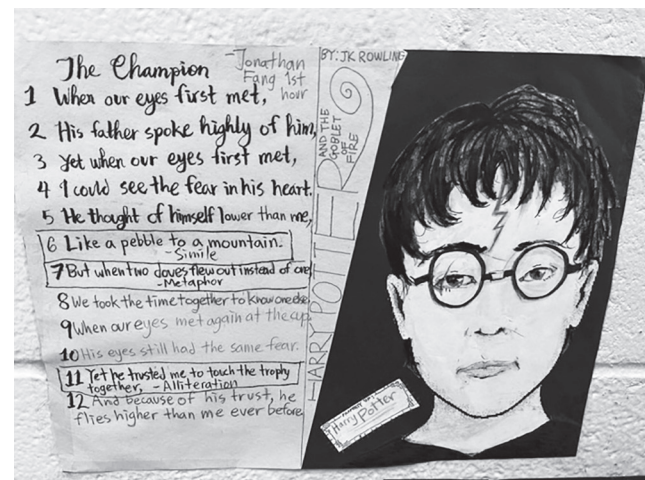 The Champion
-Jonathan
Fang 1st
hour
1 When our eyes first met,
2 His father spoke highly of him,
3 Yet when our eyes first met,
4 I could see the fear in his heart.
5 He thought of himself lower than me,
6 Like a pebble to a mountain.
-Simile
7 But when two doves flew out instead of one
-Metaphor
8 We took the time together to know
9 When our eyes met again at the cup
10 His eyes still had the same fear.
11 Yet he trusted me, to touch the trophy
together, -Alliteration
12 And because of his trust, he
flies higher than me ever before
BY: JK ROWLING
HARRY POTTER
AND THE
GOBLET
OF
FIRE
Harry Potter